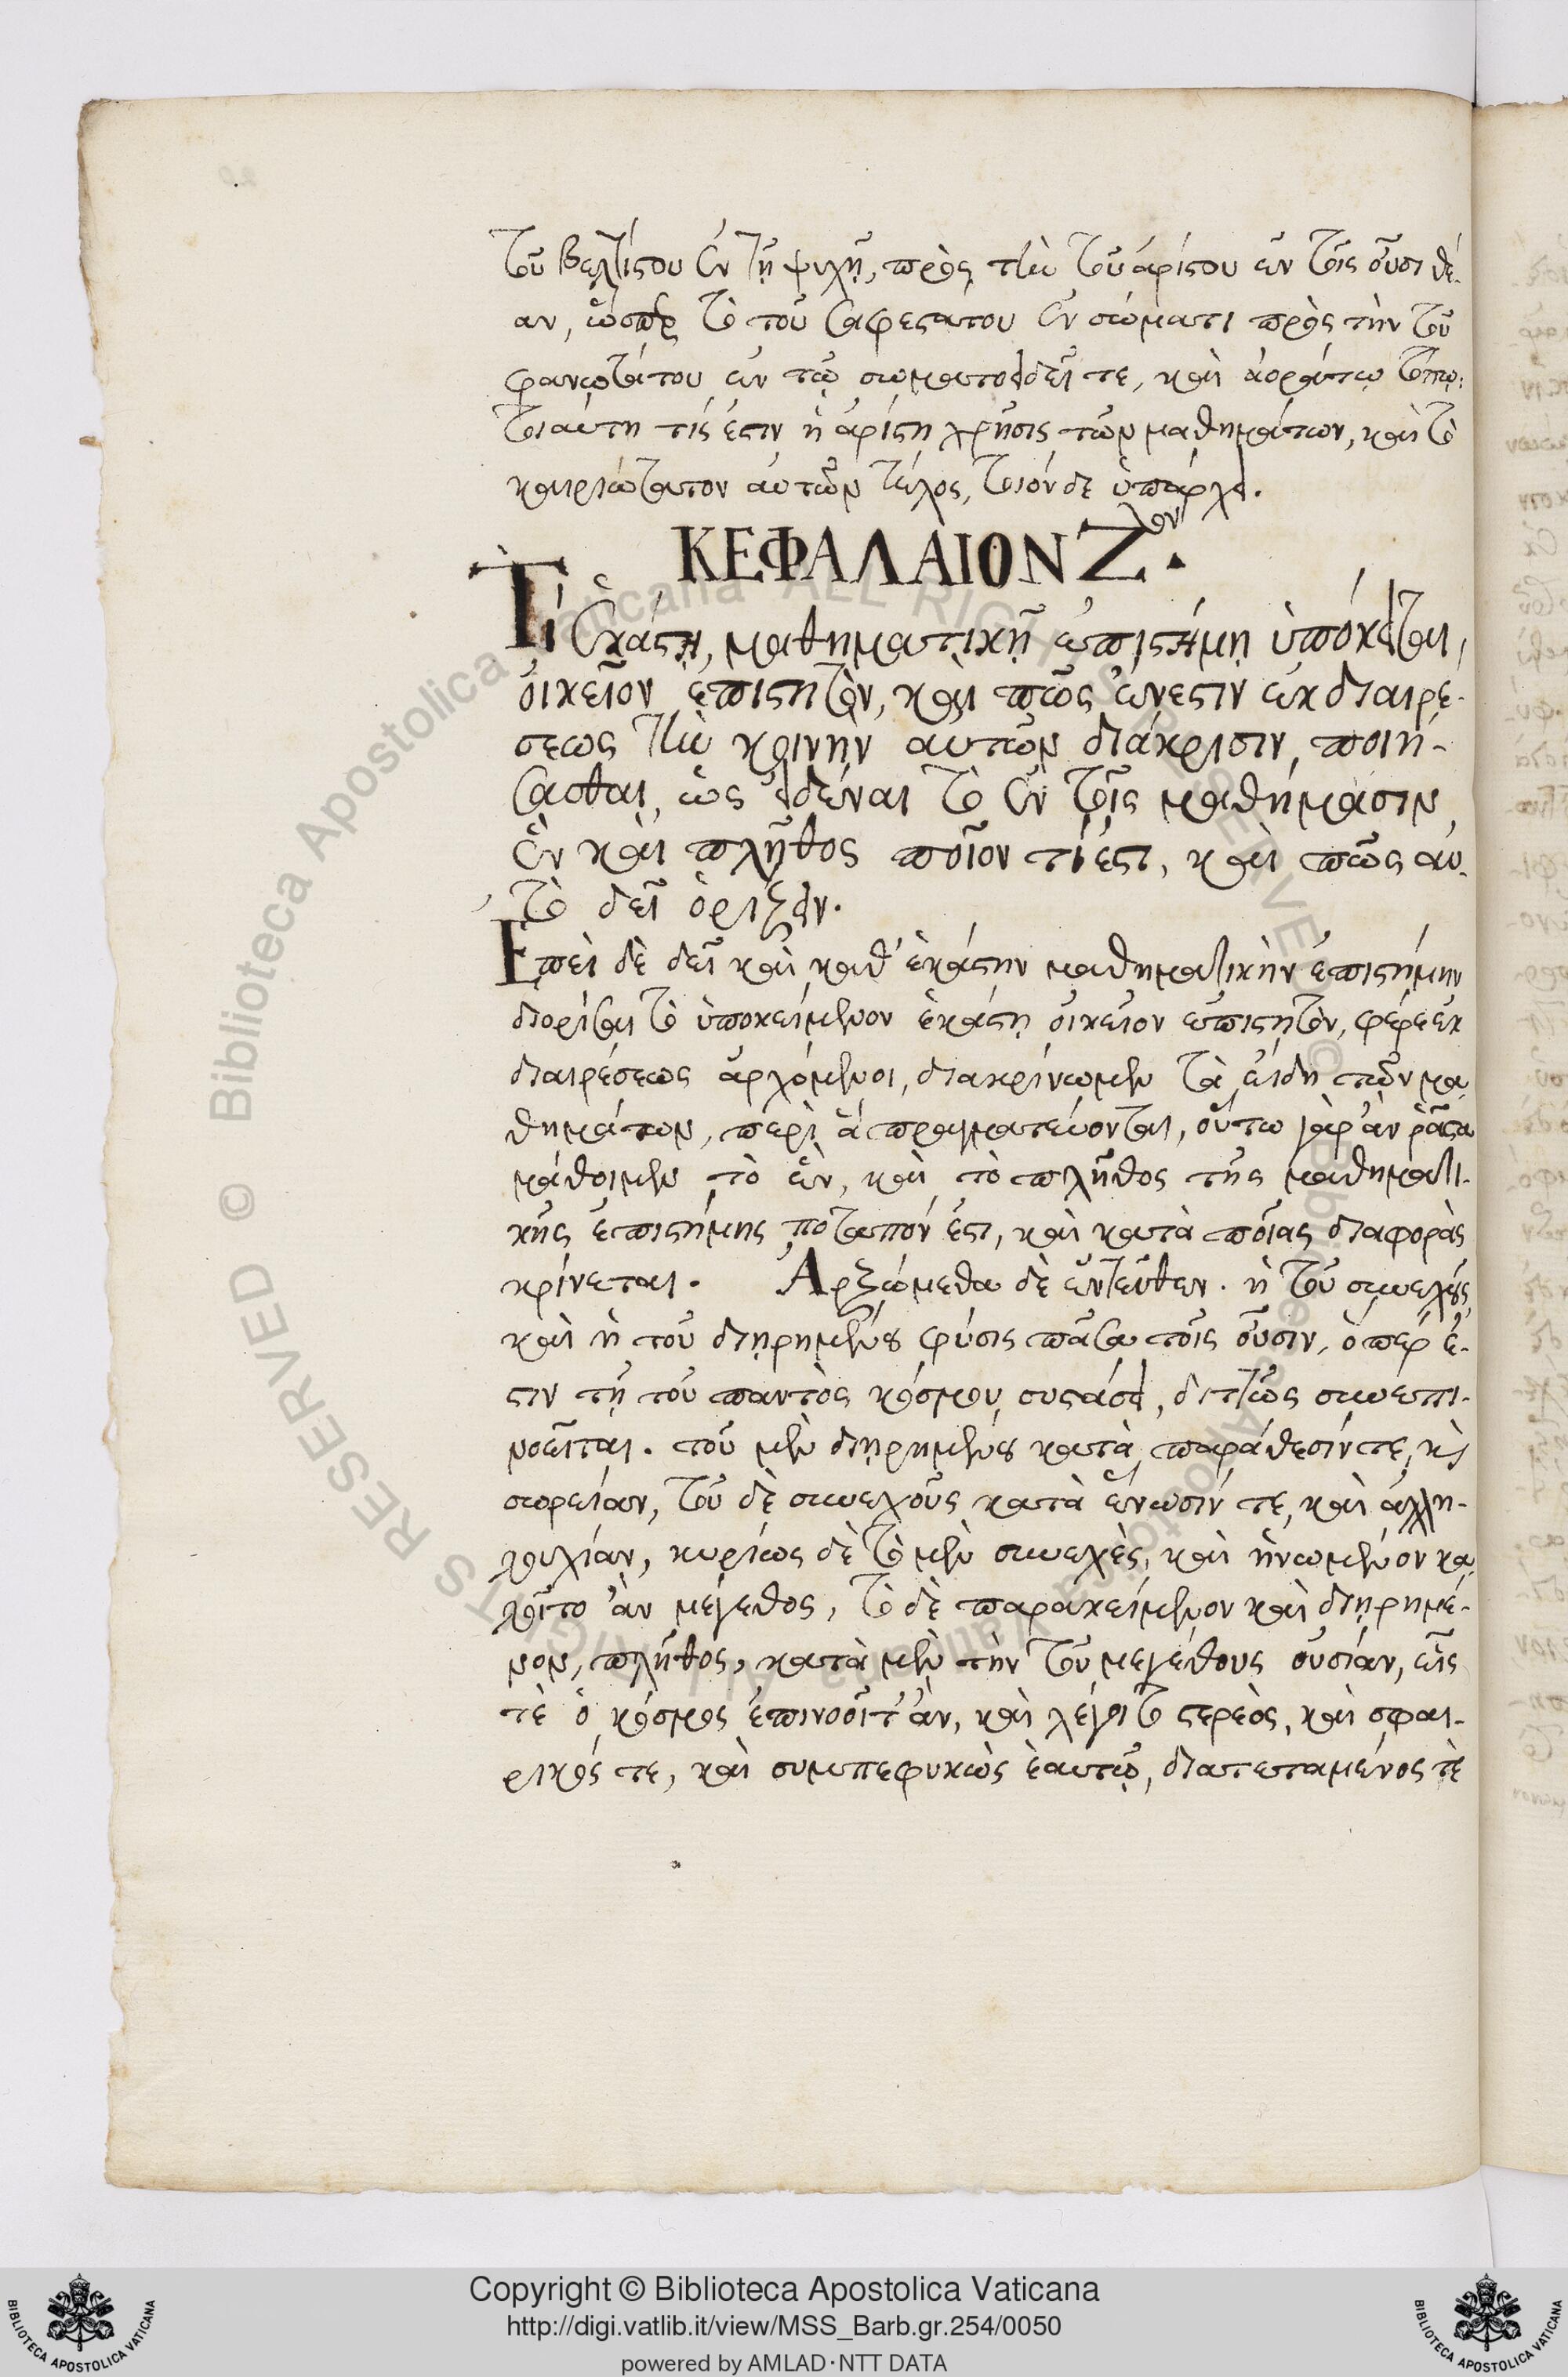 τοῦ βελτίστου ἐν τῇ ψυχῇ, πρὸς τὴν τοῦ ἀρίστου ἐν τοῖς οὖσι θέ-
αν, ὥσπερ τὸ τοῦ σαφεστάτου ἐν σώματι πρὸς τὴν τοῦ
φανωτάτου ἐν τῷ σωματοειδεῖ τε, καὶ ὁράτῳ τόπῳ:
τοιαύτη τίς ἐστιν ἡ ἀρίστη χρῆσις τῶν μαθημάτων, καὶ τὸ
καιριώτατον αὐτῶν τέλος, τοιόνδε ὑπάρχει.
ΚΕΦΑΛΑΙΟΝ Ζ.
Τί ἑκάστῃ, μαθηματικῇ ἐπιστήμῃ ὑπόκειται,
οἰκεῖον ἐπιστητὸν, καὶ πῶς ἔνεστιν ἐκ διαιρέ-
σεως τὴν κοινὴν αὐτῶν διάκρισιν, ποιή-
σασθαι, ὡς εἰδέναι τὸ ἐν τοῖς μαθήμασιν,
ἓν καὶ πλῆθος ποῖον τί ἐστι, καὶ πῶς αὐ-
τὸ δεῖ ὁρίζειν.
Ἐπεὶ δὲ δεῖ καὶ καθ' ἑκάστην μαθηματικὴν ἐπιστήμην
διορίσαι τὸ ὑποκείμενον ἑκάστῃ οἰκεῖον ἐπιστητὸν, φέρε ἐκ
διαιρέσεως ἀρχόμενοι, διακρίνωμεν τὰ εἴδη τῶν μα
θημάτων, περὶ ἃ πραγματεύονται, οὕτω γὰρ ἂν ῥᾷστα
μάθοιμεν τὸ ἓν, καὶ τὸ πλῆθος τῆς μαθηματι-
κῆς ἐπιστήμης ποταπόν ἐστι, καὶ κατὰ ποίας διαφορὰς
κρίνεται. Ἀρξώμεθα δὲ ἐντεῦθεν. ἡ τοῦ συνεχοῦς
καὶ ἡ τοῦ διῃρημένου φύσις πᾶσα τοῖς οὖσιν, ὅπερ ἐ-
στιν τῇ τοῦ παντὸς κόσμου συστάσει, διττῶς συνεπι-
νοεῖται. τοῦ μὲν διῃρημένου κατὰ παράθεσίν τε, καὶ
σωρείαν, τοῦ δὲ συνεχοῦς κατὰ ἕνωσίν τε, καὶ ἀλλη-
λουχίαν, κυρίως δὲ τὸ μὲν συνεχὲς, καὶ ἡνωμένον κα
λοῖτο ἂν μέγεθος, τὸ δὲ παρακείμενον καὶ διῃρημέ-
νον, πλῆθος, κατὰ μὲν τὴν τοῦ μεγέθους οὐσίαν, εἷς
τὲ ὁ κόσμος ἐπινοοῖτ' ἂν, καὶ λέγοιτο στερεὸς, καὶ σφαι-
ρικός τε, καὶ συμπεφυκὼς ἑαυτῷ, διατεταμένος τὲ
Copyright © Biblioteca Apostolica Vaticana
http://digi.vatlib.it/view/MSS_Barb.gr.254/0050
powered by AMLAD·NTT DATA